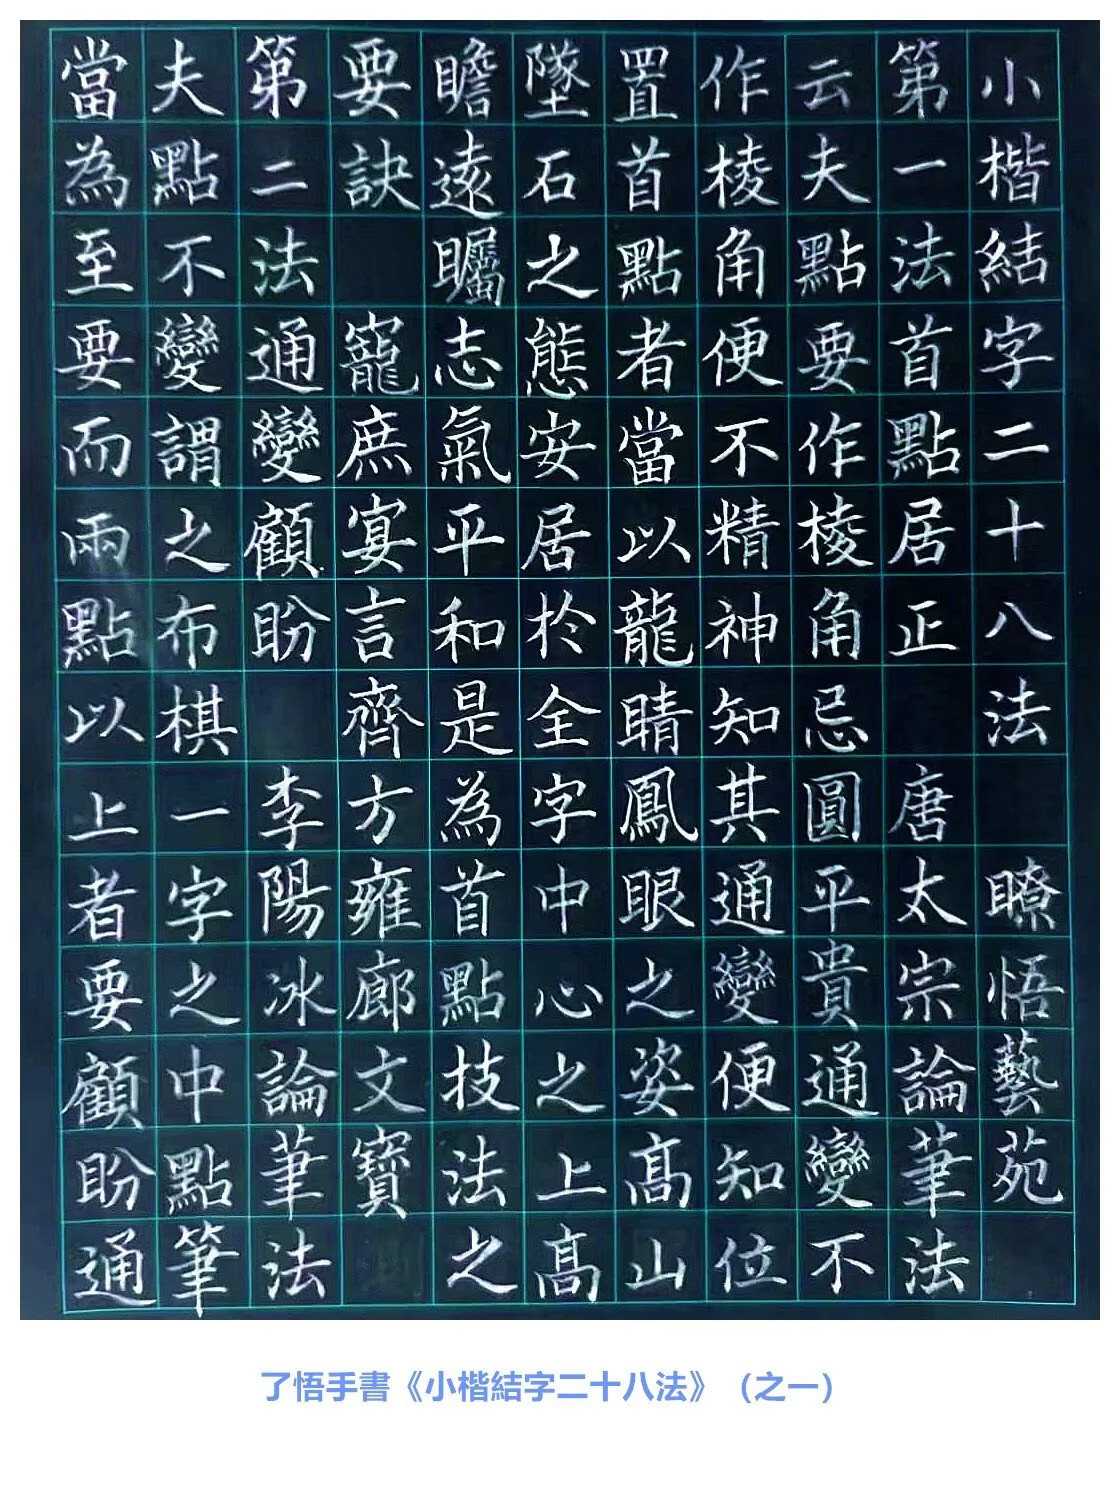 小楷結字二十八法 瞭悟藝苑
第一法首點居正 唐太宗論筆法
云夫點要作棱角忌圓平貴通變不
作棱角便不精神知其通變便知位
置首點者當以龍睛鳳眼之姿髙山
墜石之態安居於全字中心之上髙
瞻遠矚志氣平和是為首點技法之
要訣 寵庶宴言齊方雍廊文寶
第二法通變顧盼 李陽冰論筆法
夫點不變謂之布棋一字之中點筆
當為至要而兩點以上者要顧盼通
了悟手書《小楷結字二十八法》（之一）